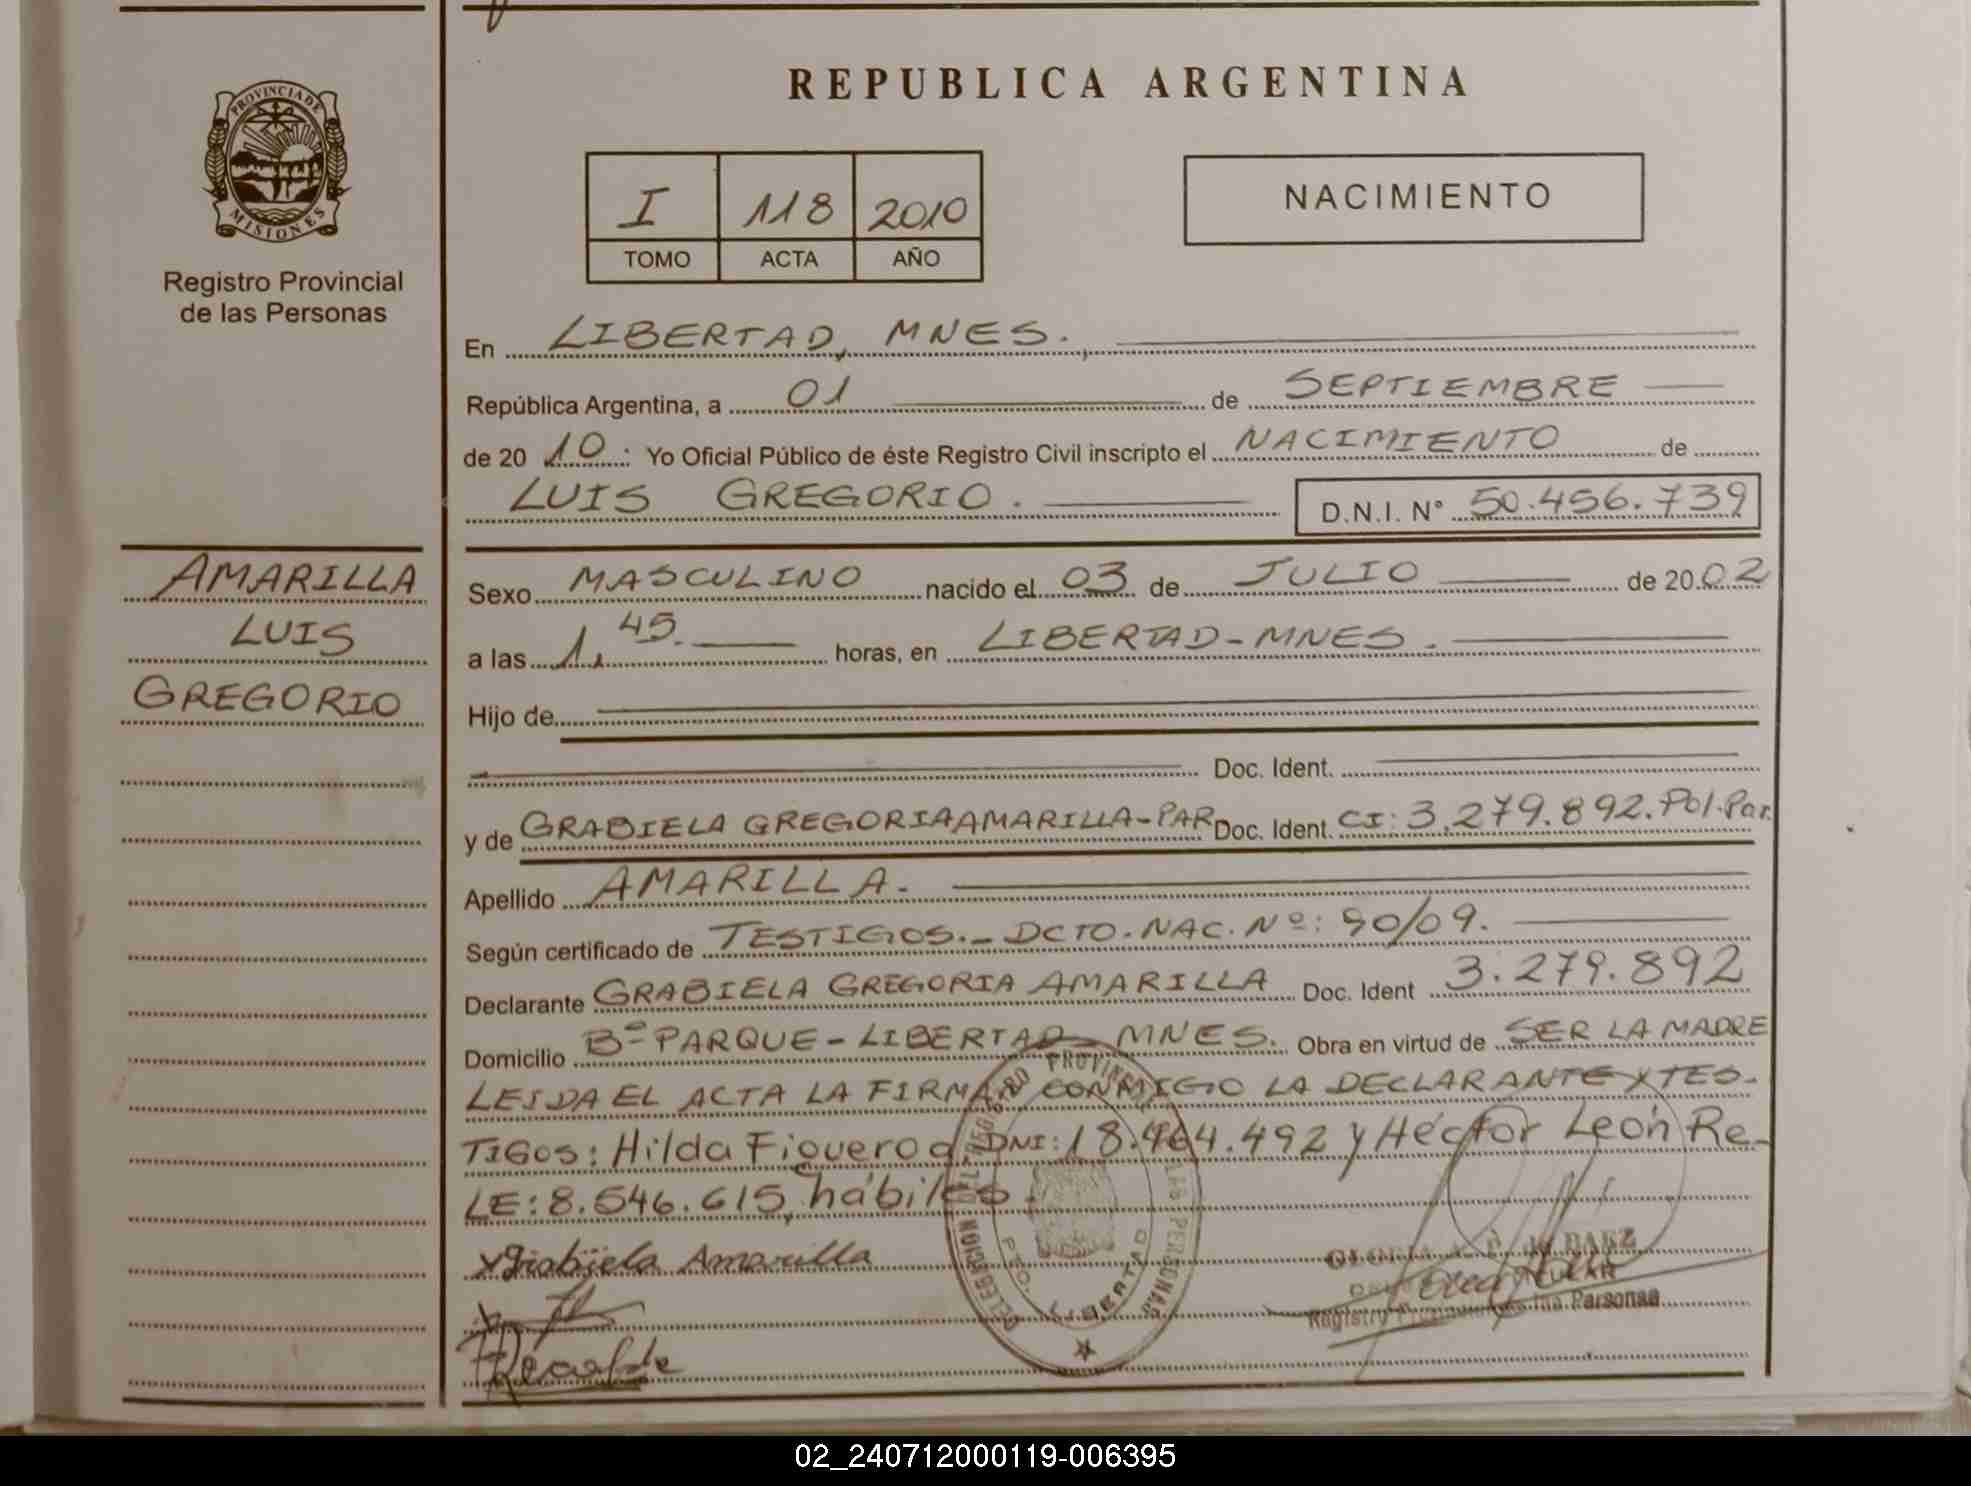 PROVINCIA DE
MISIONES
Registro Provincial
de las Personas
AMARILLA
LUIS
GREGORIO
REPUBLICA ARGENTINA
I 118 2010
TOMO ACTA AÑO
NACIMIENTO
En LIBERTAD, MNES.,
República Argentina, a 01 de SEPTIEMBRE
de 20 10. Yo Oficial Público de éste Registro Civil inscripto el NACIMIENTO de
LUIS GREGORIO. D.N.I. N° 50.456.739
Sexo MASCULINO nacido el 03 de JULIO de 20.02
a las 1,45. horas, en LIBERTAD-MNES.
Hijo de
Doc. Ident.
y de GRABIELA GREGORIA AMARILLA-PAR Doc. Ident. CI: 3.279.892.Pol.Par.
Apellido AMARILLA.
Según certificado de TESTIGOS.- DCTO. NAC. Nº: 90/09.
Declarante GRABIELA GREGORIA AMARILLA Doc. Ident 3.279.892
Domicilio Bº PARQUE-LIBERTAD-MNES. Obra en virtud de SER LA MADRE
LEIDA EL ACTA LA FIRMAN CONMIGO LA DECLARANTE Y TES-
TIGOS: Hilda Figueroa, DNI: 18.464.492 y Héctor León Re-
LE: 8.546.615, hábiles.
Grabiela Amarilla
DELEGACION DEL REGISTRO PROVINCIAL DE LAS PERSONAS
LIBERTAD
BAEZ
TITULAR
Registro Provincial de las Personas
Recalde
02_240712000119-006395